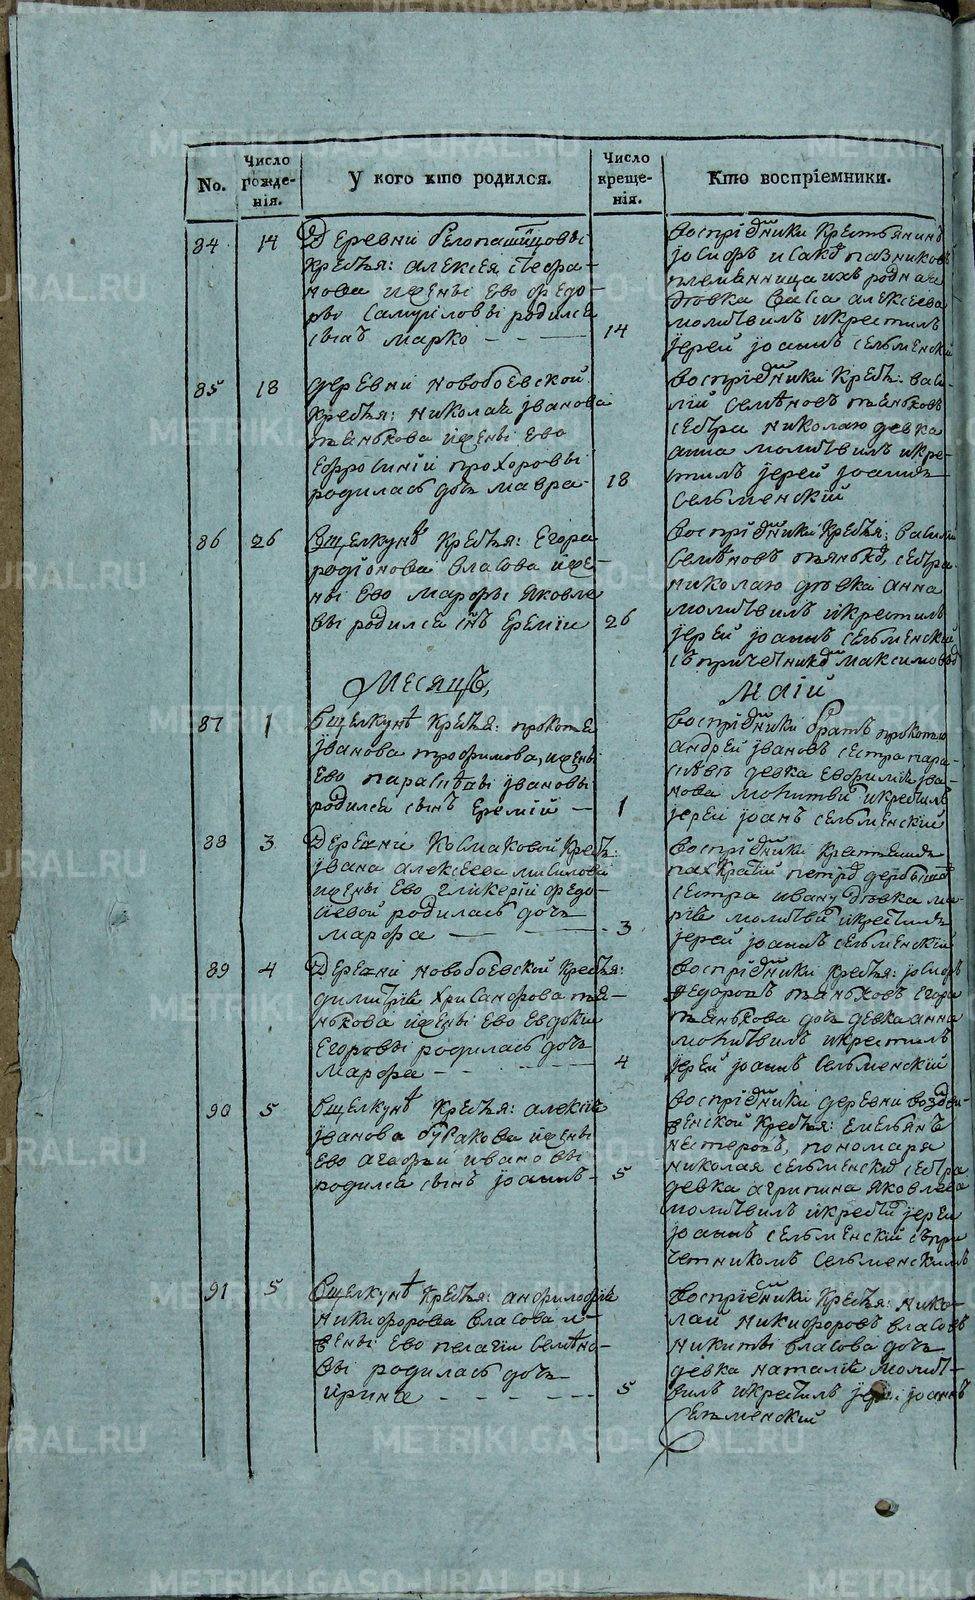 No.
Число рожде-нія.
У кого кто родился.
Число креще-нія.
Кто воспріемники.
84 14
Деревни
Кресть: алексея стефа-
нова жены ево федо-
ры самуиловы родился
сынъ марко
14
воспріемники Крестьянинъ
іосифъ исаковъ пазниковъ
племянница ихъ родная
дѣвка васса алексеева
молитвилъ и крестилъ
іерей іоаннъ сельменский
85 18
деревни новобоевской
Кресть: николая іванова
панькова жены ево
ефросиніи прохоровы
родилась дочь мавра
18
воспріемники Крестъ: васи-
лій семѣновъ паньковъ
сестра николаю девка
анна молитвилъ и кре-
стилъ іерей іоаннъ
сельменский
86 26
вщелкунѣ Крестья: егора
родіонова власова же-
ны ево марфы яковле
вы родился снъ еремій
26
воспріемники Крестья: василій
семѣновъ паньковъ, сестра
николаю дѣвка анна
молитвилъ и крестилъ
іерей іоаннъ сельменский
съ причетникомъ максимовымъ
Месяцъ,
Маій
87 1
вщелкунѣ Крестья: прокопья
іванова трофимова, жены
ево парасковьи івановы
родился сынъ еремій
1
воспріемники братъ прокопью
андрей івановъ сестра пара-
девка евфимія іва-
нова молитвилъ и крестилъ
іерей іоанъ сельменский
88 3
Деревни Космаковой Кресть:
івана алексеева
жены ево гликеріи федо-
сіевой родилась дочь
марфа
3
воспріемники Крестьянинъ
панкратій петровъ
сестра ивану дѣвка ма-
рія молитвилъ и крестилъ
іерей іоаннъ сельменский
89 4
Деревни новобоевской Кресть:
димитрія хрисанфова па-
нькова жены ево евдокии
егоровы родилась дочь
марфа
4
воспріемники Кресть: іосифъ
федоровъ паньковъ егора
панькова дочь девка анна
молитвилъ и крестилъ
іерей іоаннъ сельменский
90 5
вщелкунѣ Крестья: алексія
іванова бушакова жены
ево агафьи ивановы
родился сынъ іоаннъ
5
воспріемники деревни воздви-
женской Крестья: емельянъ
нестеровъ, пономаря
николая сельменского сестра
девка агрипина яковлева
молитвилъ и крестилъ іерей
іоаннъ сельменский съ при
четникомъ сельменскимъ
91 5
вщелкунѣ Крестья: анфилофія
никифорова власова и-
жены ево пелагіи семѣно-
вы родилась дочь
ірина
5
воспріемники Крестья: нико-
лай никифоровъ власовъ
никиты власова дочь
девка наталія молит-
вилъ и крестилъ іерей іоаннъ
сельменский
METRIKI.GASO-URAL.RU